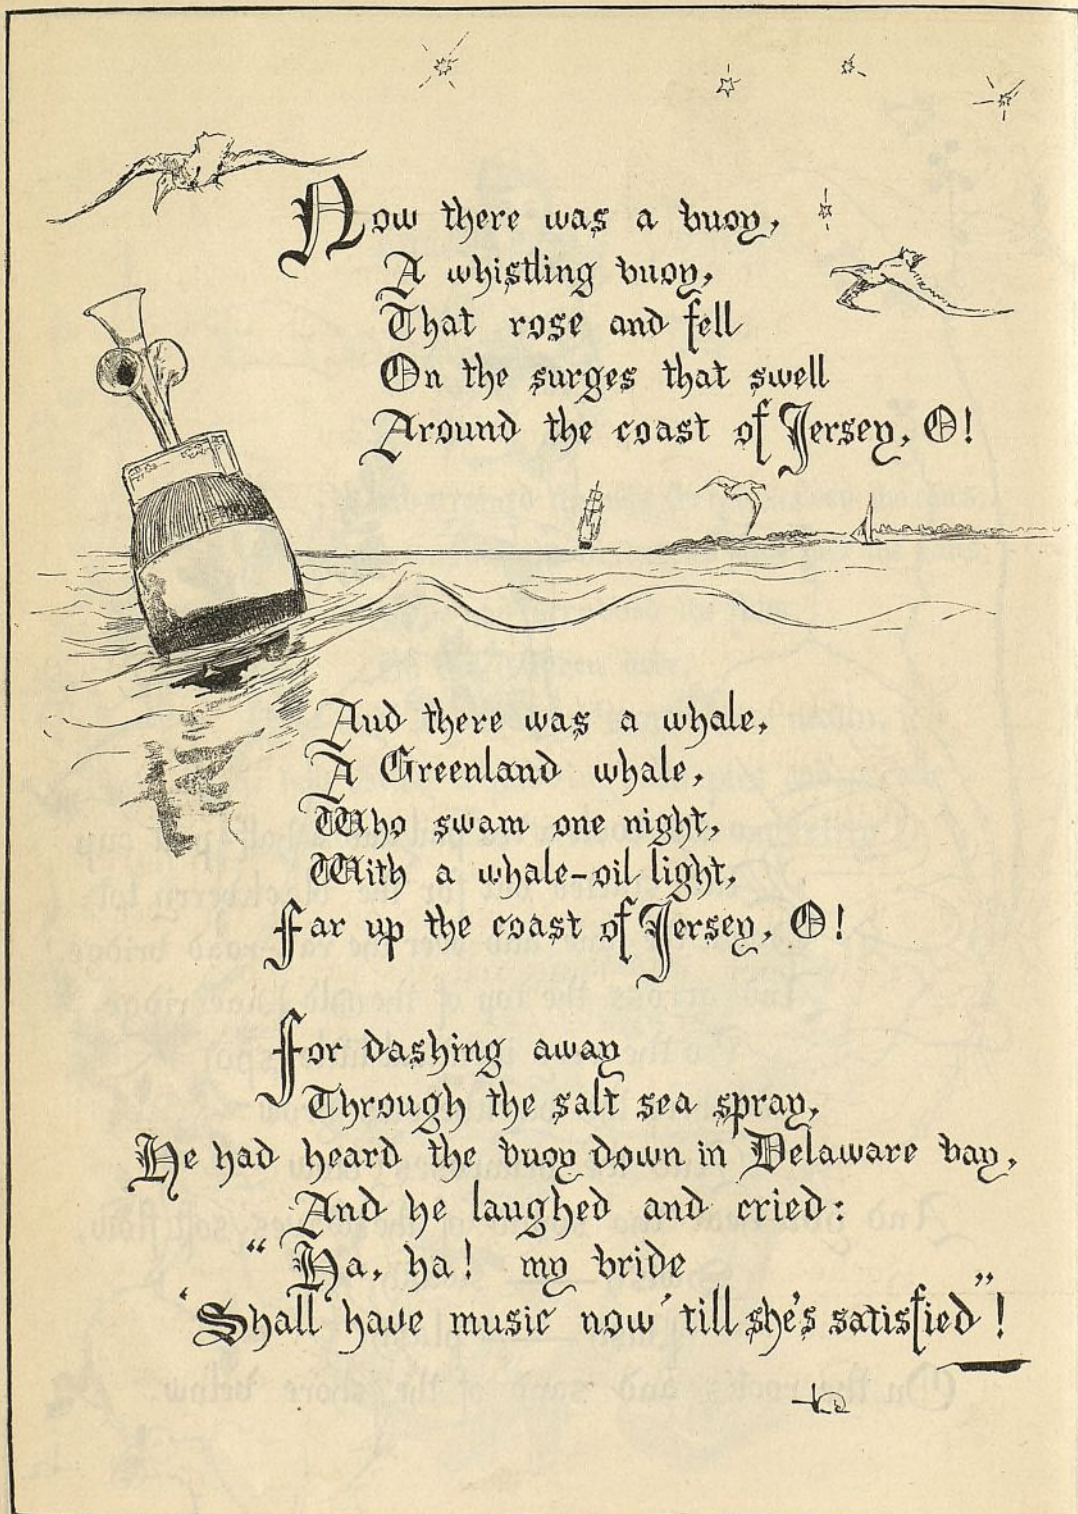 Now there was a buoy,
A whistling buoy,
That rose and fell
On the surges that swell
Around the coast of Jersey, O!
And there was a whale,
A Greenland whale,
Who swam one night,
With a whale-oil light,
Far up the coast of Jersey, O!
For dashing away
Through the salt sea spray,
He had heard the buoy down in Delaware bay,
And he laughed and cried:
“Ha, ha! my bride
‘Shall have music now ’till she's satisfied”!